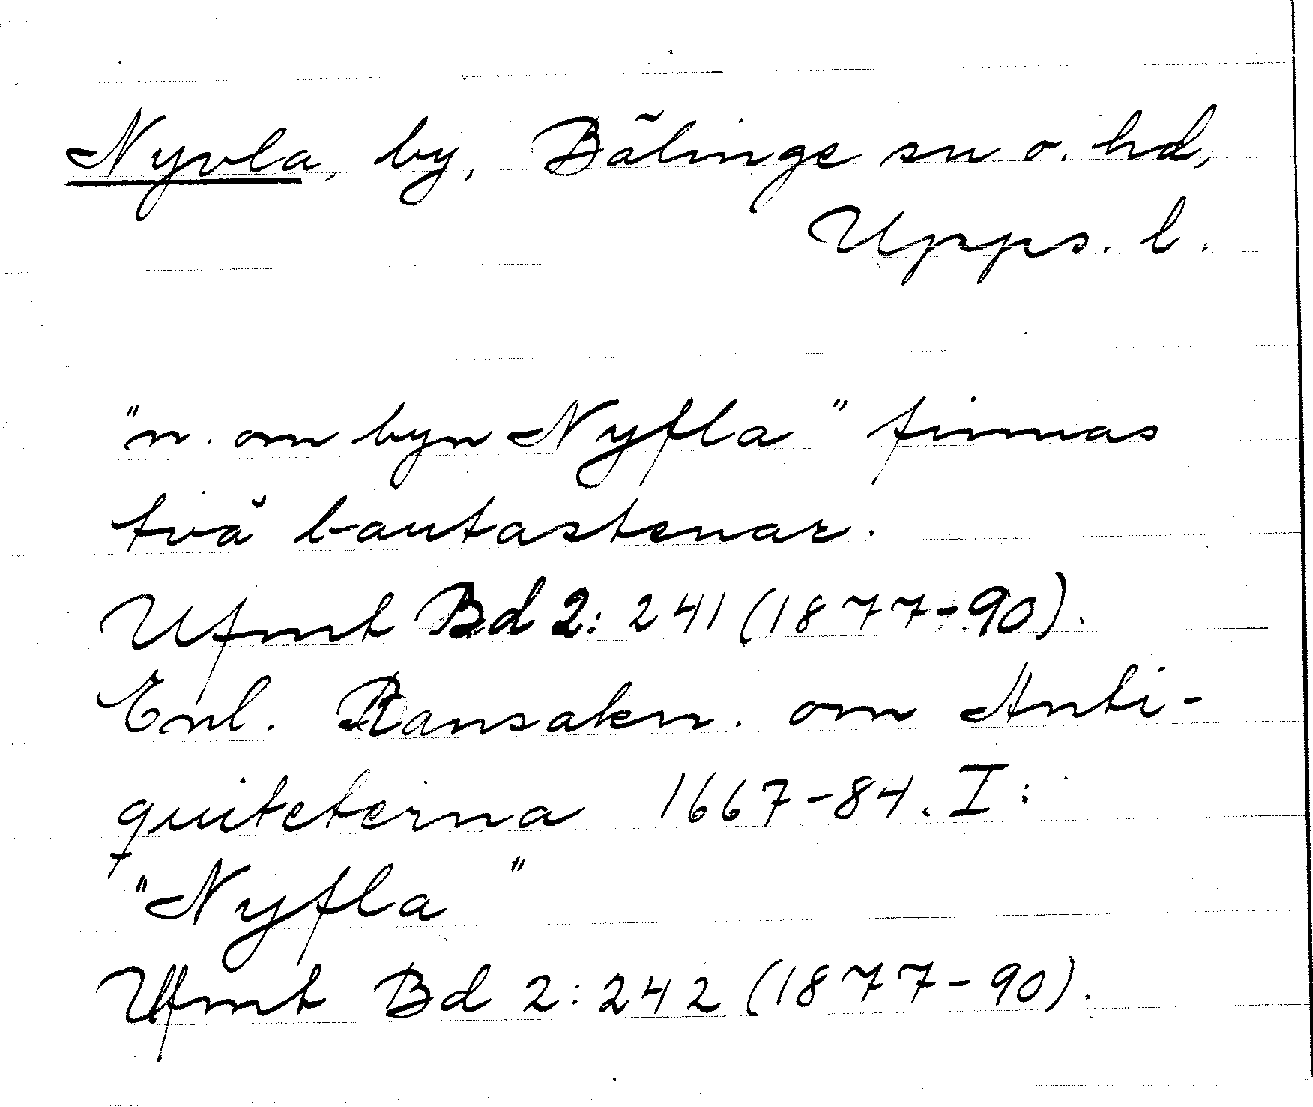 Nyvla, by, Bälinge sn o. hd,
Upps. l.
"n. om byn Nyfla" finnas
två bautastenar.
Ufmt Bd 2: 241 (1877-90).
Enl. Ransakn. om Anti-
quiteterna 1667-84. I:
"Nyfla"
Ufmt Bd 2: 242 (1877-90).